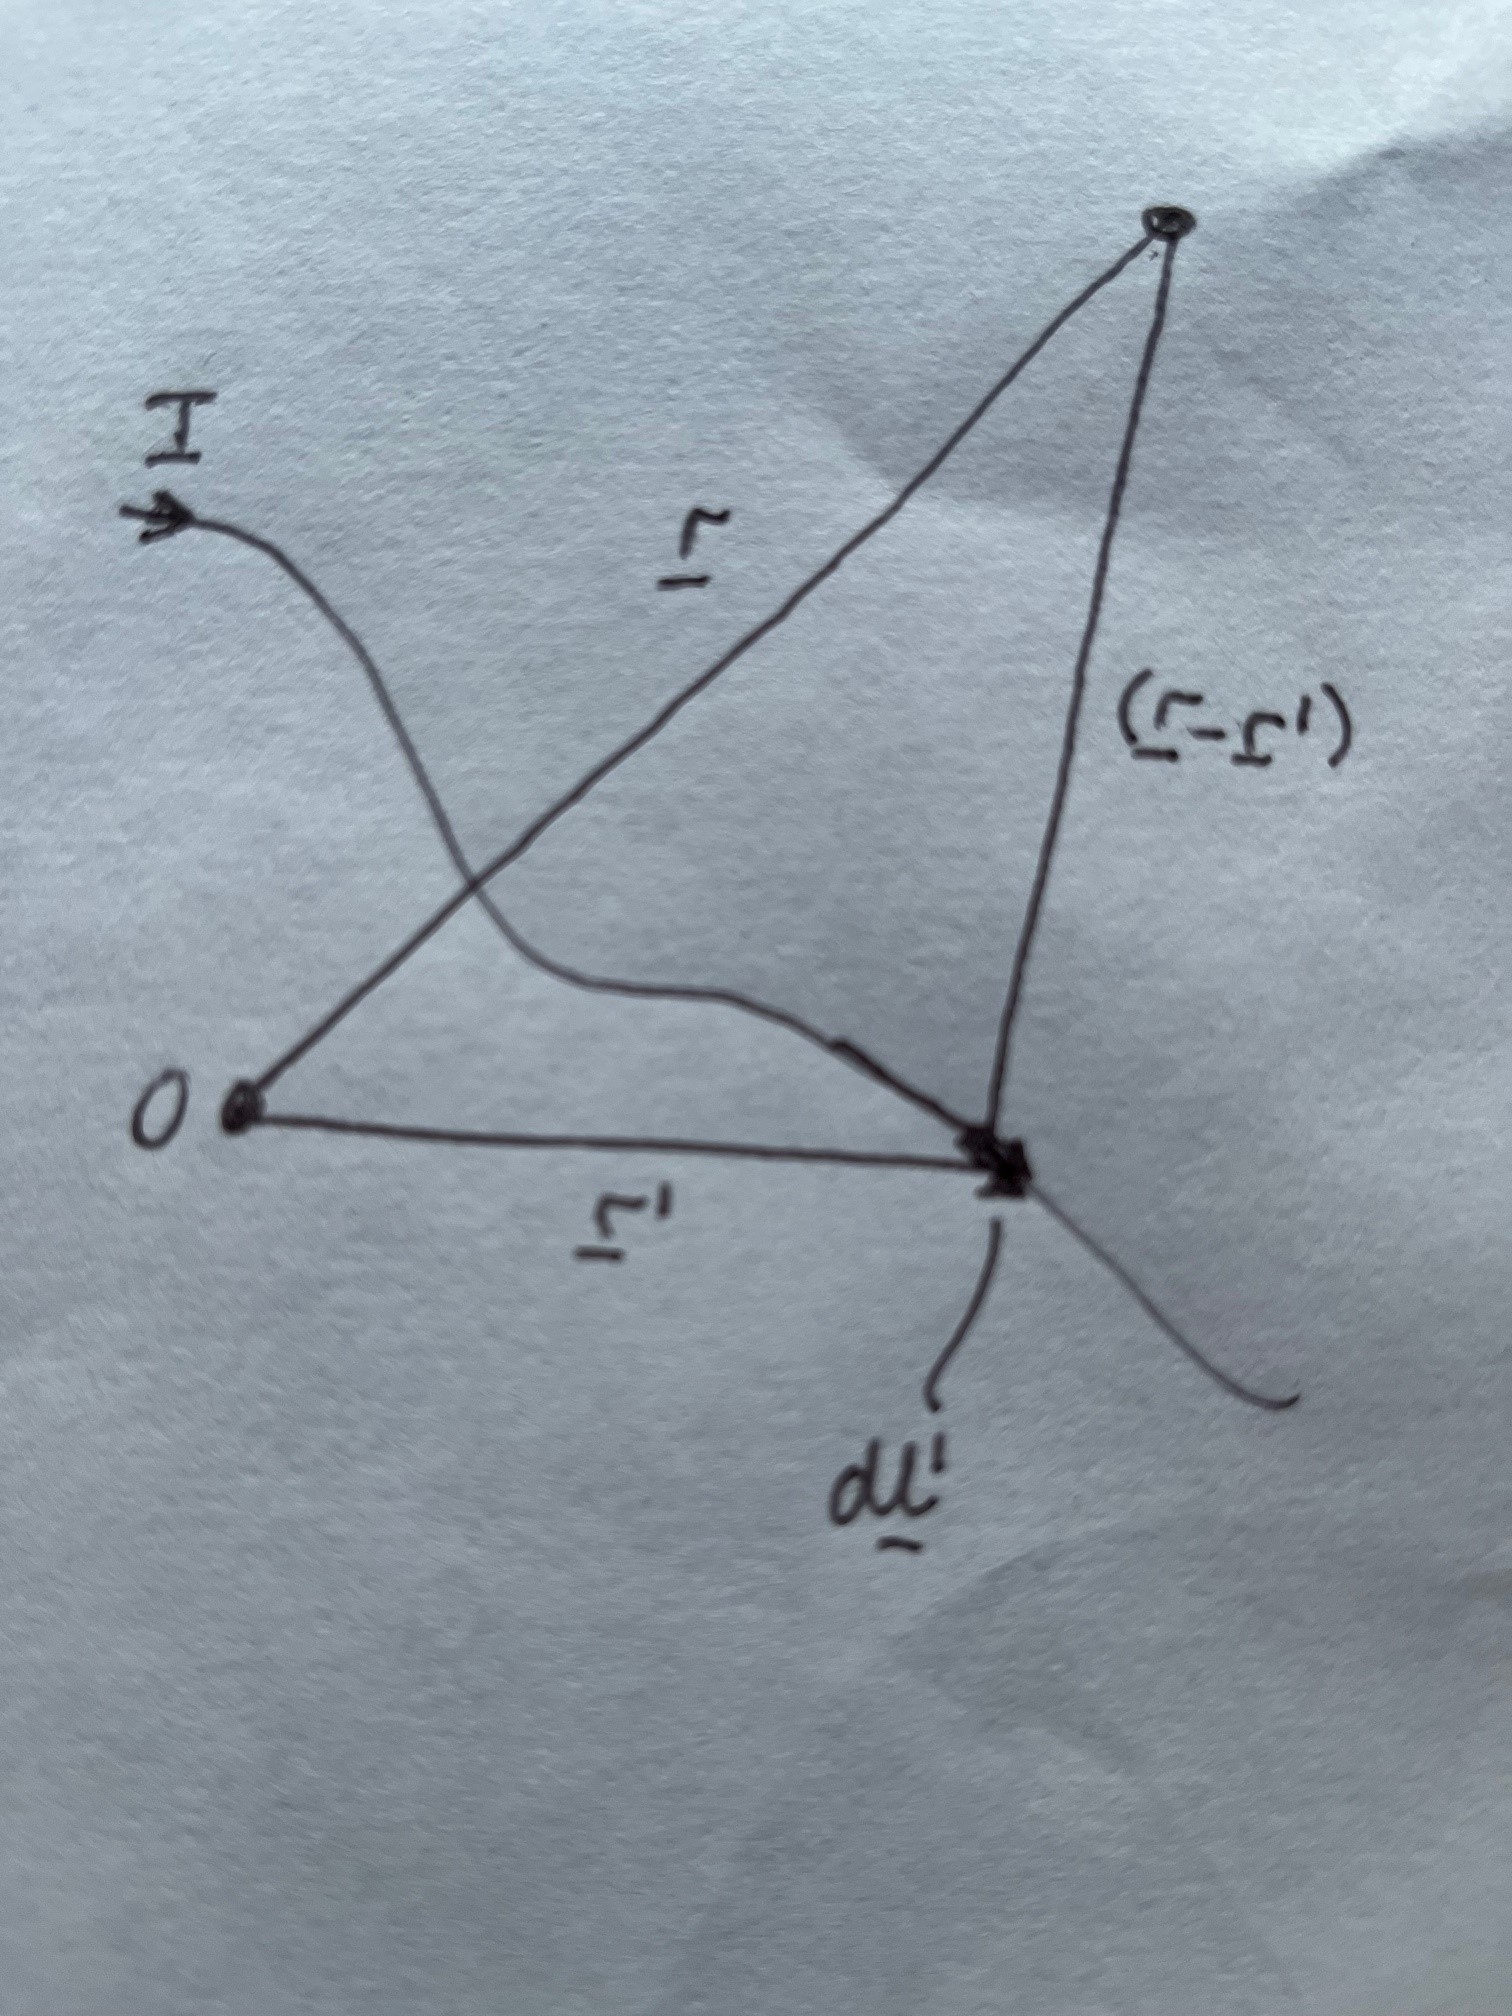 I
r
(r-r')
O
r'
dl'